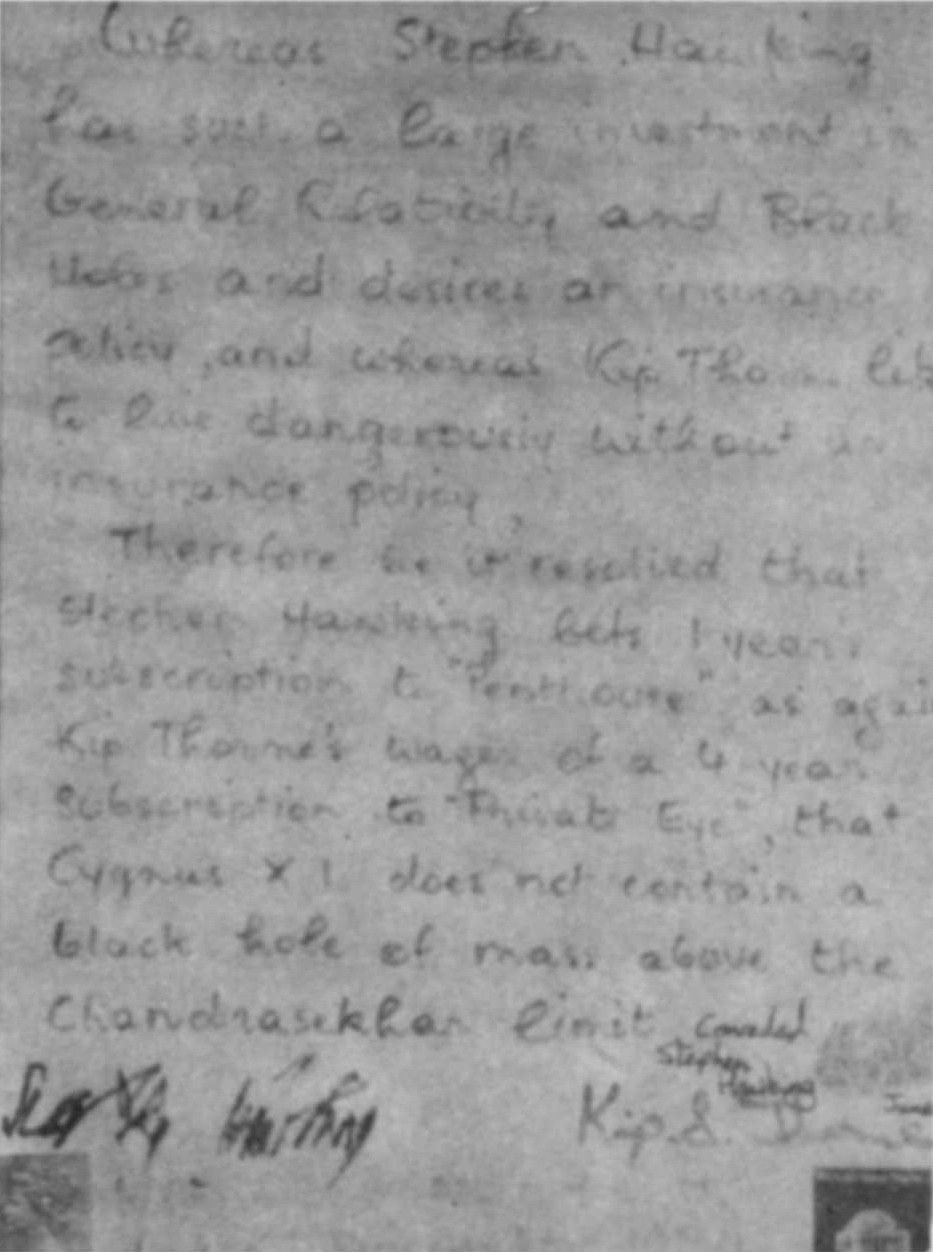 Whereas Stephen Hawking
has such a large investment in
General Relativity and Black
Holes and desires an insurance
policy, and whereas Kip Thorne likes
to live dangerously without an
insurance policy,
Therefore be it resolved that
Stephen Hawking bets 1 year's
subscription to "Penthouse" as agai
Kip Thorne's wager of a 4 year
subscription to "Private Eye", that
Cygnus X 1 does not contain a
black hole of mass above the
Chandrasekhar limit
Conceded
Stephen
Hawking
Stephen Hawking
Kip S. Thorne
June